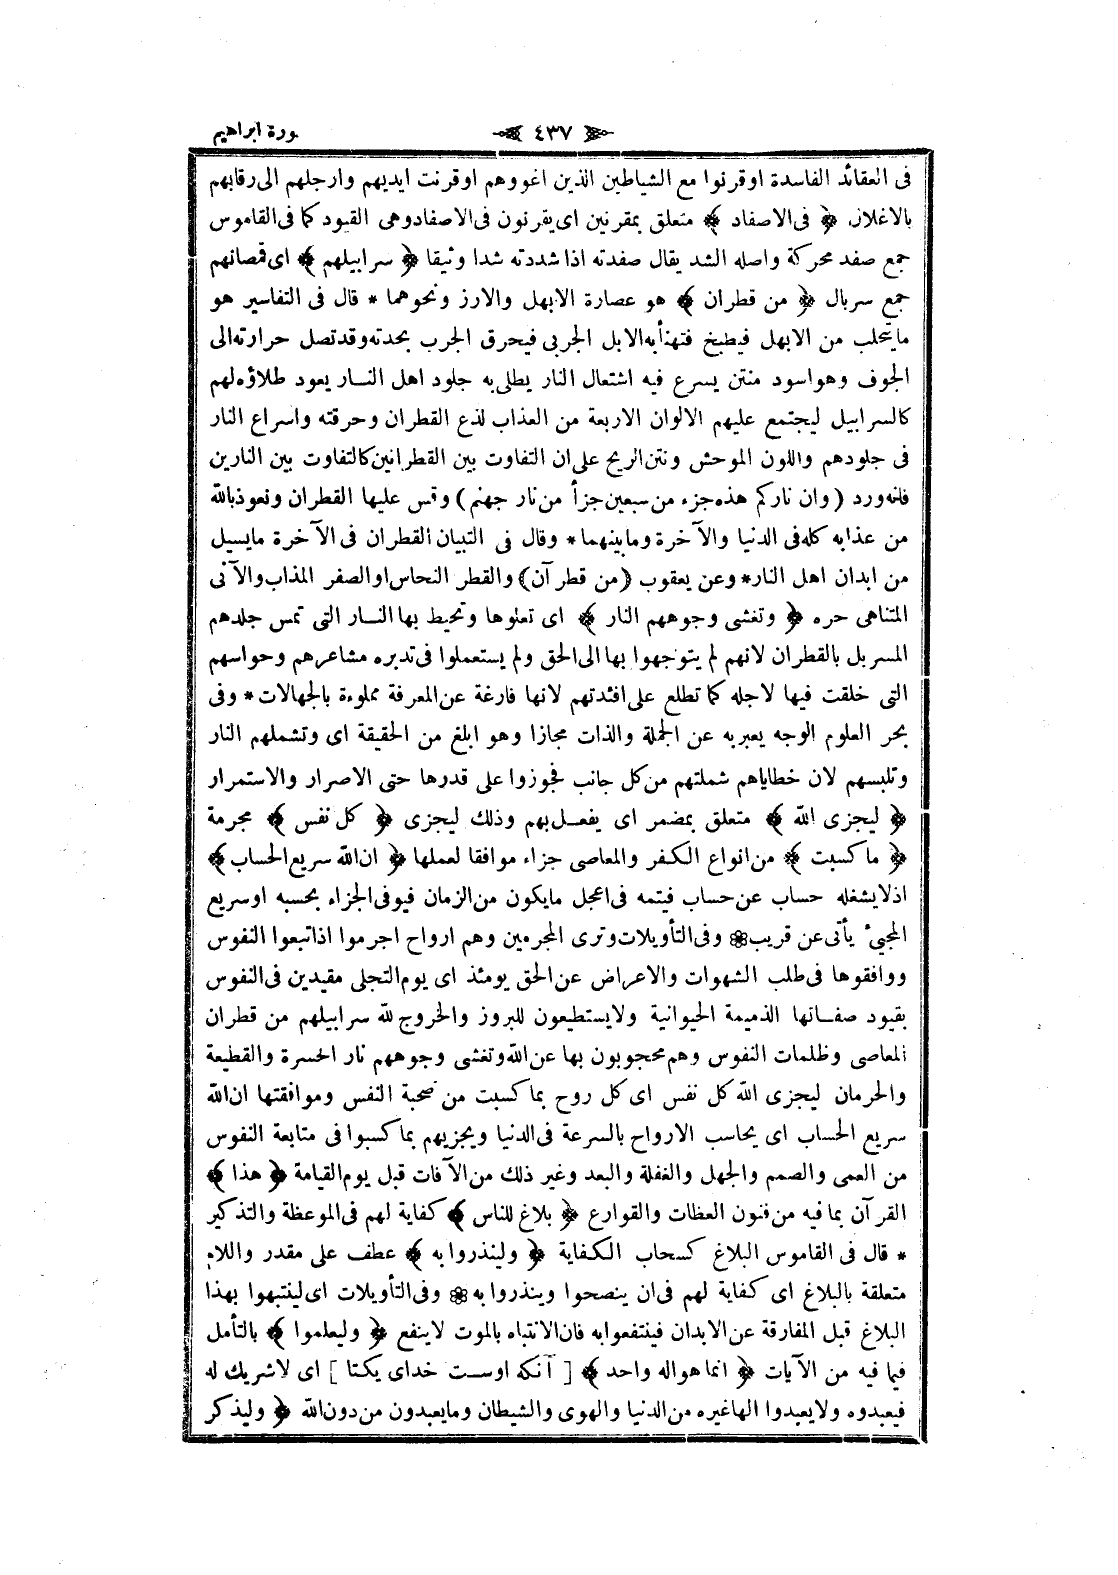 سورة ابراهيم ٤٣٧
فى العقائد الفاسدة او قرنوا مع الشياطين الذين اغووهم او قرنت ايديهم وارجلهم الى رقابهم
بالاغلال ﴿ فى الاصفاد ﴾ متعلق بمقرنين اى يقرنون فى الاصفاد وهى القيود كما فى القاموس
جمع صفد محركة واصله الشد يقال صفدته اذا شددته شدا وثيقا ﴿ سرابيلهم ﴾ اى قمصانهم
جمع سربال ﴿ من قطران ﴾ هو عصارة الابهل والارز ونحوهما * قال فى التفاسير هو
مايتحلب من الابهل فيطبخ فتهنأ به الابل الجربى فيحرق الجرب بحدته وقد تصل حرارته الى
الجوف وهو اسود منتن يسرع فيه اشتعال النار يطلى به جلود اهل النار يعود طلاؤه لهم
كالسرابيل ليجتمع عليهم الالوان الاربعة من العذاب لذع القطران وحرقته واسراع النار
فى جلودهم واللون الموحش ونتن الريح على ان التفاوت بين القطرانين كالتفاوت بين النارين
فانه ورد (وان ناركم هذه جزء من سبعين جزأ من نار جهنم) وقس عليها القطران ونعوذ بالله
من عذابه كله فى الدنيا والآخرة ومابينهما * وقال فى التبيان القطران فى الآخرة مايسيل
من ابدان اهل النار * وعن يعقوب (من قطر آن) والقطر النحاس او الصفر المذاب والآنى
المتناهى حره ﴿ وتغشى وجوههم النار ﴾ اى تعلوها وتحيط بها النار التى تمس جلدهم
المسربل بالقطران لانهم لم يتوجهوا بها الى الحق ولم يستعملوا فى تدبره مشاعرهم وحواسهم
التى خلقت فيها لاجله كما تطلع على افئدتهم لانها فارغة عن المعرفة مملوءة بالجهالات * وفى
بحر العلوم الوجه يعبربه عن الجملة والذات مجازا وهو ابلغ من الحقيقة اى وتشملهم النار
وتلبسهم لان خطاياهم شملتهم من كل جانب فجوزوا على قدرها حتى الاصرار والاستمرار
﴿ ليجزى الله ﴾ متعلق بمضمر اى يفعل بهم وذلك ليجزى ﴿ كل نفس ﴾ مجرمة
﴿ ما كسبت ﴾ من انواع الكفر والمعاصى جزاء موافقا لعملها ﴿ ان الله سريع الحساب ﴾
اذ لايشغله حساب عن حساب فيتمه فى اعجل مايكون من الزمان فيوفى الجزاء بحسبه او سريع
المجيئ يأتى عن قريب ❁ وفى التأويلات وترى المجرمين وهم ارواح اجرموا اذ اتبعوا النفوس
ووافقوها فى طلب الشهوات والاعراض عن الحق يومئذ اى يوم التجلى مقيدين فى النفوس
بقيود صفاتها الذميمة الحيوانية ولايستطيعون للبروز والخروج لله سرابيلهم من قطران
المعاصى وظلمات النفوس وهم محجوبون بها عن الله وتغشى وجوههم نار الحسرة والقطيعة
والحرمان ليجزى الله كل نفس اى كل روح بما كسبت من صحبة النفس وموافقتها ان الله
سريع الحساب اى يحاسب الارواح بالسرعة فى الدنيا ويجزيهم بما كسبوا فى متابعة النفوس
من العمى والصمم والجهل والغفلة والبعد وغير ذلك من الآفات قبل يوم القيامة ﴿ هذا ﴾
القرآن بما فيه من فنون العظات والقوارع ﴿ بلاغ للناس ﴾ كفاية لهم فى الموعظة والتذكير
* قال فى القاموس البلاغ كسحاب الكفاية ﴿ ولينذروا به ﴾ عطف على مقدر واللام
متعلقة بالبلاغ اى كفاية لهم فى ان ينصحوا وينذروا به ❁ وفى التأويلات اى لينتبهوا بهذا
البلاغ قبل المفارقة عن الابدان فينتفعوا به فان الانتباه بالموت لاينفع ﴿ وليعلموا ﴾ بالتأمل
فيما فيه من الآيات ﴿ انما هو اله واحد ﴾ [ آنكه اوست خداى يكتا ] اى لاشريك له
فيعبدوه ولايعبدوا الها غيره من الدنيا والهوى والشيطان ومايعبدون من دون الله ﴿ وليذكر